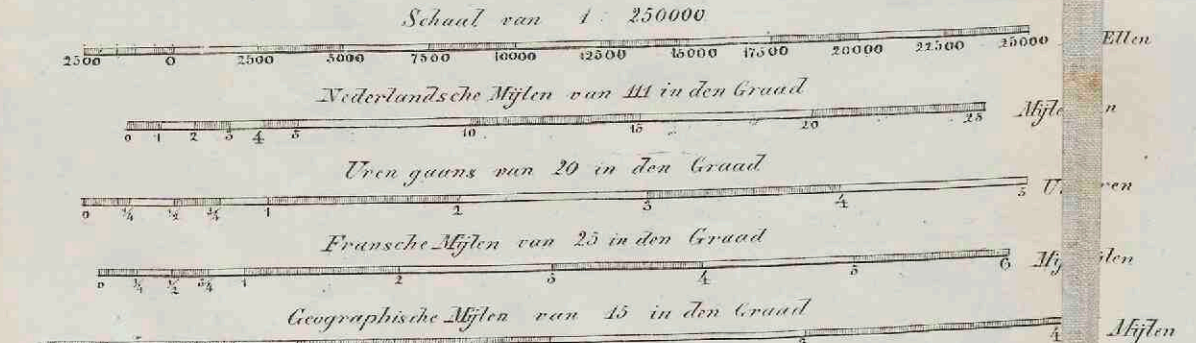 Schaal van 1 : 250000
2500 0 2500 5000 7500 10000 12500 15000 17500 20000 22500 25000 Ellen
Nederlandsche Mijlen van 111 in den Graad
0 1 2 3 4 5 10 15 20 25 Mijlen
Uren gaans van 20 in den Graad
0 1/4 1/2 3/4 1 2 3 4 5 Uren
Fransche Mijlen van 25 in den Graad
0 1/4 1/2 3/4 1 2 3 4 5 6 Mijlen
Geographische Mijlen van 15 in den Graad
4 Mijlen